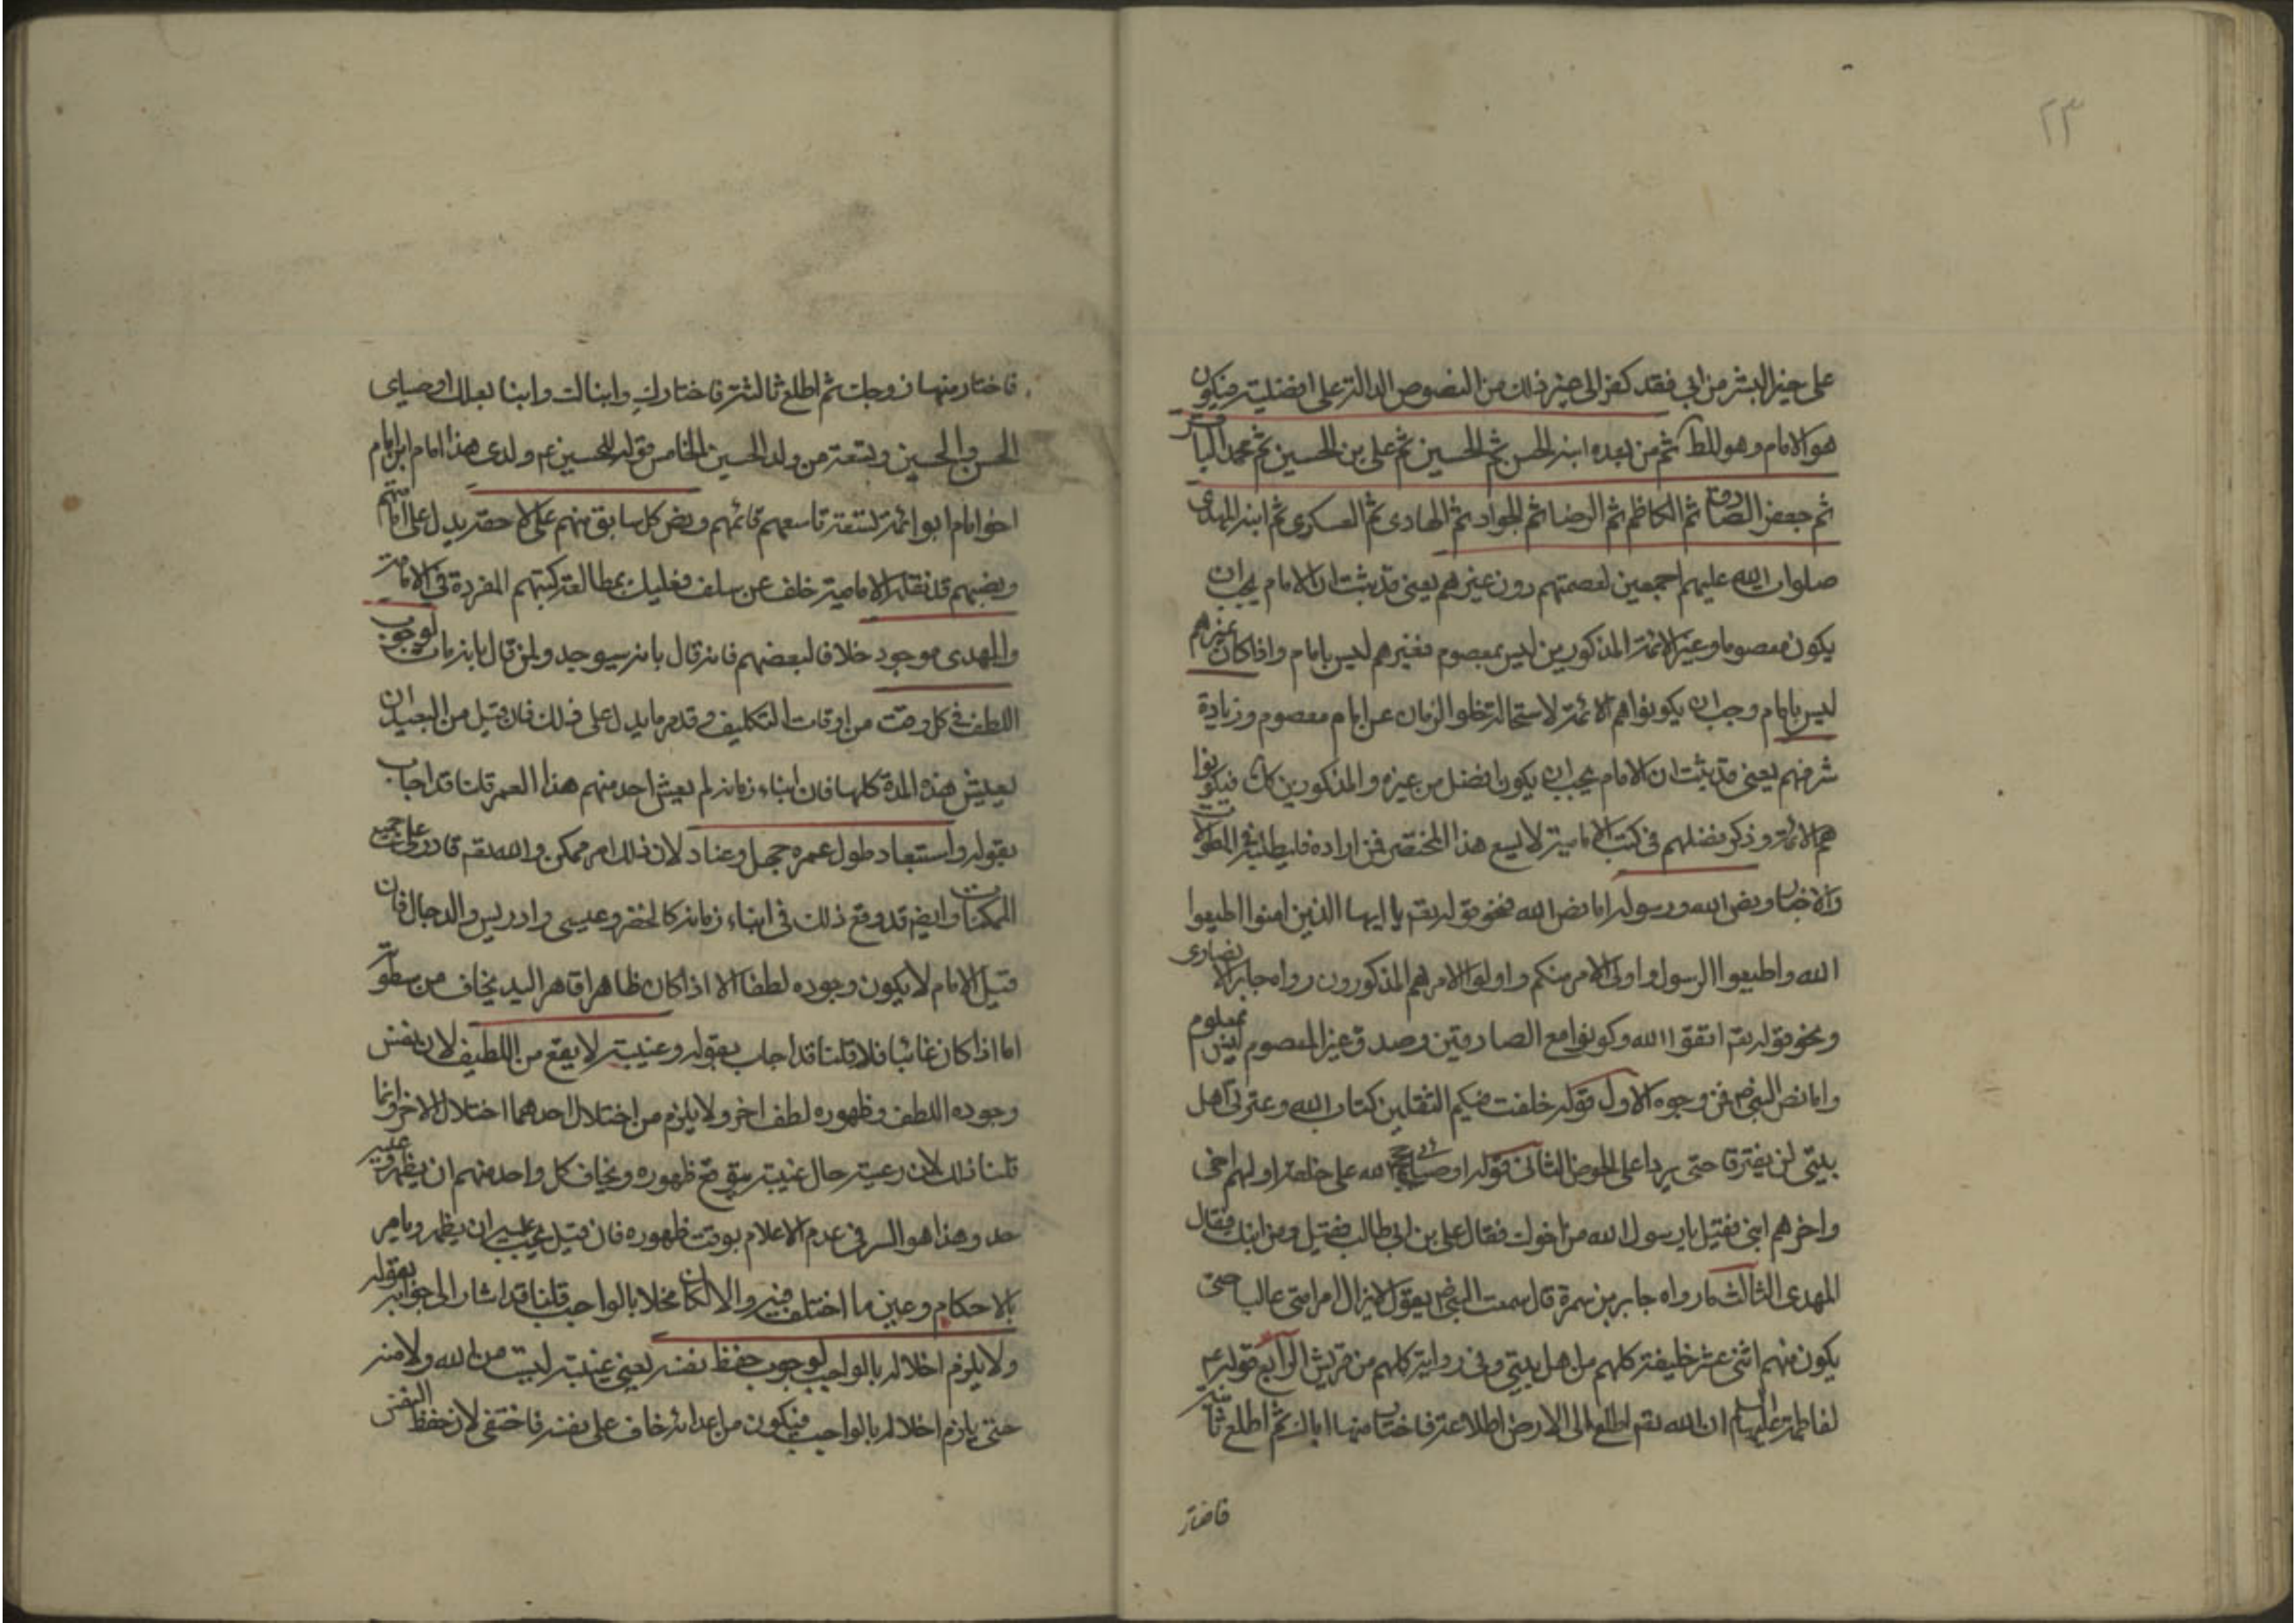 ٢٣
على خير البشر من ابى فقد كفر الى غير ذلك من النصوص الدالة على افضليته فيكون
هو الامام وهو المط ثم من بعده ابنه الحسن ثم الحسين ثم على بن الحسين ثم محمد الباقر
ثم جعفر الصادق ثم الكاظم ثم الرضا ثم الجواد ثم الهادى ثم العسكرى ثم ابنه المهدى
صلوات الله عليهم اجمعين لعصمتهم دون غيرهم يعنى قد ثبت ان الامام يجب ان
يكون معصوما وغير الائمة المذكورين ليس بمعصوم فغيرهم ليس بامام واذا كان غيرهم
ليس بامام وجب ان يكونوا هم الائمة لاستحالة خلو الزمان عن امام معصوم وزيادة
شرفهم يعنى قد ثبت ان الامام يجب ان يكون افضل من غيره والمذكورين كك فيكونوا
هم الائمة وذكر فضلهم فى كتب الامامية لا يسع هذا المختصر فمن اراده فليطلبه فى المطولات
والاخبار ونص الله ورسوله اما نص الله فنحو قوله تعم يا ايها الذين امنوا اطيعوا
الله واطيعوا الرسول واولى الامر منكم واولو الامر هم المذكورون رواه جابر الانصارى
ونحو قوله تعم اتقوا الله وكونوا مع الصادقين وصدق غير المعصوم ليس بمعلوم
واما نص النبى ص فمن وجوه الاول قوله خلفت فيكم الثقلين كتاب الله وعترتى اهل
بيتى لن يفترقا حتى يردا على الحوض الثانى قوله اوصيائى حجج الله على خلقه اولهم اخى
واخرهم ابنى فقيل يا رسول الله من اخوك فقال على بن ابى طالب فقيل ومن ابنك فقال
المهدى الثالث ما رواه جابر بن سمرة قال سمعت النبى ص يقول لا يزال امر امتى غالبا حتى
يكون منهم اثنى عشر خليفة كلهم من اهل بيتى وفى رواية كلهم من قريش الرابع قوله ع
لفاطمة عليها السلام ان الله تعم اطلع الى الارض اطلاعة فاختار منها اباك ثم اطلع ثانية
فاختار
فاختار منها زوجك ثم اطلع ثالثة فاختارك وابناك وابنا بعلك اوصياى
الحسن والحسين وتسعة من ولد الحسين الخامس قوله للحسين ع ولدى هذا امام ابن امام
اخو امام ابو ائمة تسعة تاسعهم قائمهم ونص كل سابق منهم على لاحقه يدل على امامتهم
ونصهم قد نقله الامامية خلف عن سلف فعليك بمطالعة كتبهم المفردة فى الامامة
والمهدى موجود خلافا لبعضهم فانه قال بانه سيوجد ولمن قال بانه مات لوجوب
اللطف فى كل وقت من اوقات التكليف وقد مر ما يدل على ذلك فان قيل من البعيد ان
يعيش هذه المدة كلها فان ابناء زمانه لم يعش احد منهم هذا العمر قلنا قد اجاب
بقوله واستبعاد طول عمره جهل وعناد لان ذلك امر ممكن والله تعم قادر على جميع
الممكنات وايضم قد وقع ذلك فى ابناء زمانه كالخضر وعيسى وادريس والدجال فان
قيل الامام لا يكون وجوده لطفا الا اذا كان ظاهرا قاهر اليد يخاف من سطوته
اما اذا كان غائبا فلا قلنا قد اجاب بقوله وغيبته لا يقع من اللطيف لان نفس
وجوده اللطف وظهوره لطف اخر ولا يلزم من اختلال احدهما اختلال الاخر وانما
قلنا ذلك لان رعيته حال غيبته يتوقع ظهوره ويخاف كل واحد منهم ان يظهر وعليه
حد وهذا هو السر فى عدم الاعلام بوقت ظهوره فان قيل يجب عليه ان يظهر ويامر
بالاحكام وعين ما اختلف فيه والا لكان مخلا بالواجب قلنا قد اشار الى جوابه بقوله
ولا يلزم اخلاله بالواجب لوجوب حفظ نفسه يعنى غيبته ليست من الله ولا منه
حتى يلزم اخلاله بالواجب فيكون من اعدائه خاف على نفسه فاختفى لان حفظ النفس